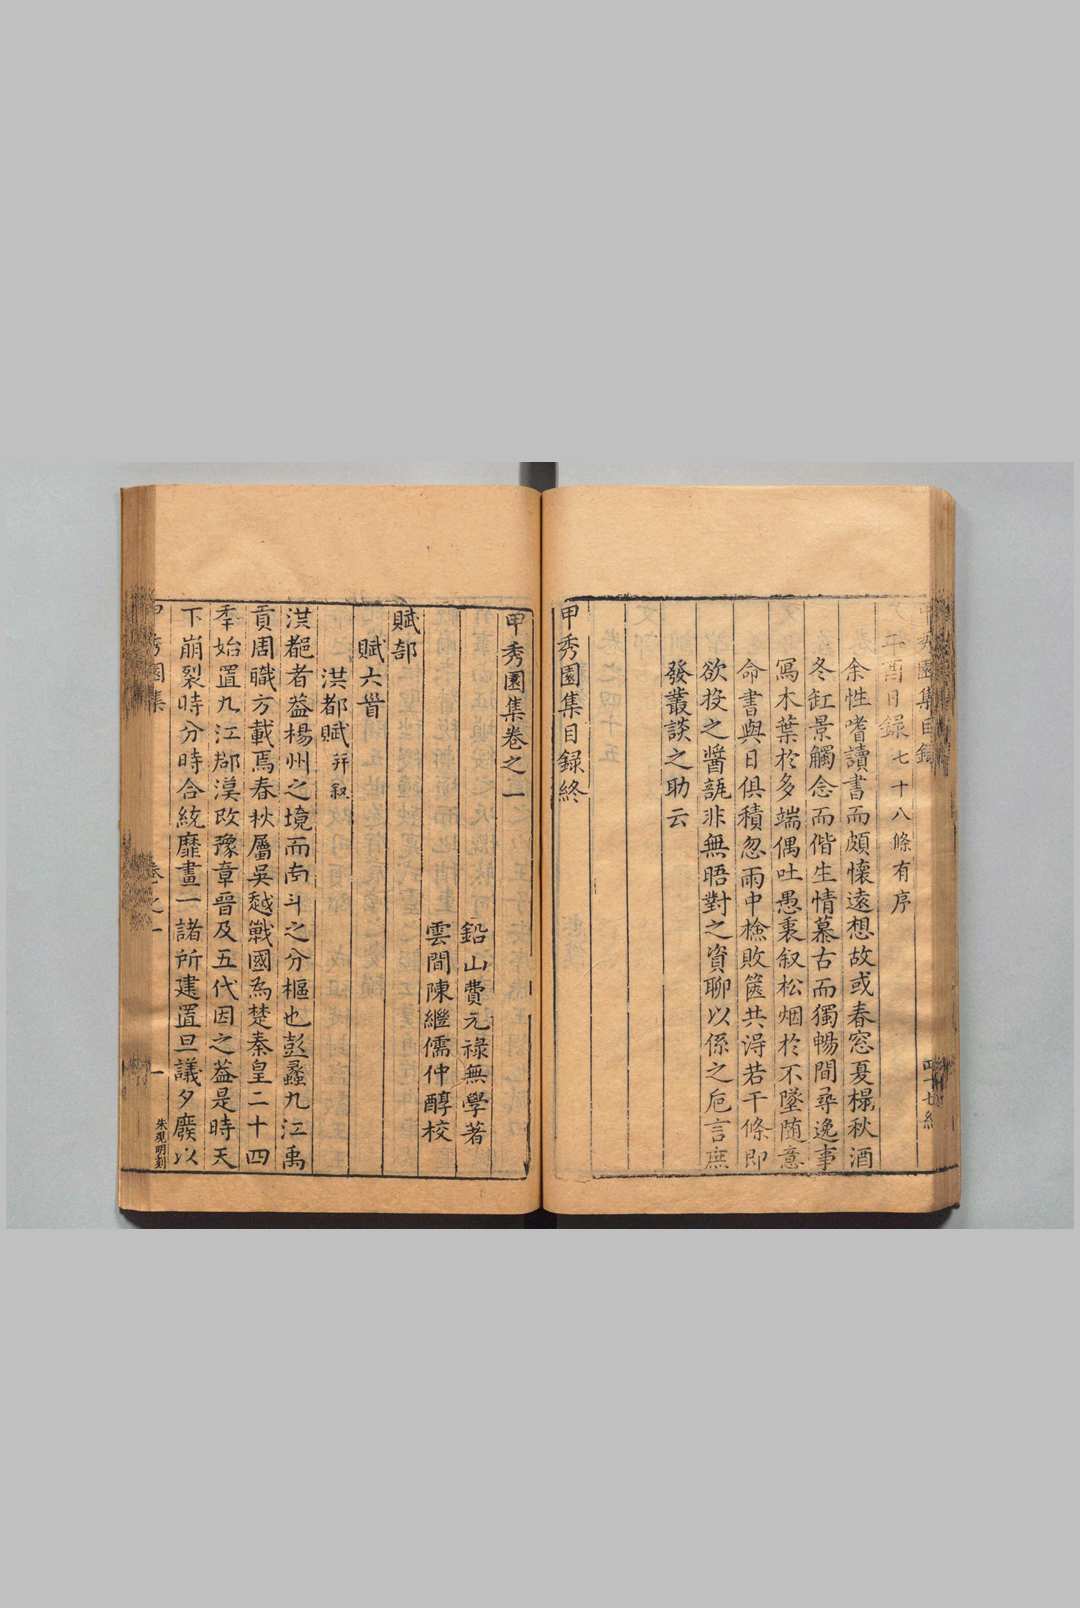 酉日錄七十八條有序
余性嗜讀書而頗懷遠想故或春窓夏榻秋酒
冬缸景觸念而偕生情慕古而獨暢間尋逸事
寫木葉於多端偶吐愚衷叙松烟於不墜随意
命書與日俱積忽雨中檢敗篋共淂若干條即
欲投之醬瓿非無晤對之資聊以係之巵言庶
發叢談之助云
甲秀園集目録終
甲秀園集卷之一
鉛山費元祿無學著
雲間陳繼儒仲醇校
賦部
賦六首
洪都賦并叙
洪都者葢楊州之境而南斗之分樞也彭蠡九江禹
貢周職方載焉春秋屬吳越戰國為楚秦皇二十四
季始置九江郡漠改豫章晉及五代因之葢是時天
下崩裂時分時合統靡畫一諸所建置旦議夕廢以
甲秀園集
卷之一
一
朱現明刻